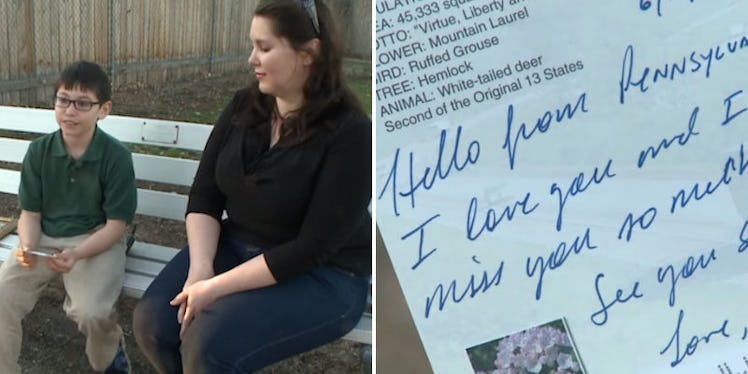 6/
EA: 45,333 squa
OTTO: "Virtue, Liberty an
LOWER: Mountain Laurel
IRD: Ruffed Grouse
TREE: Hemlock
ANIMAL: White-tailed deer
Second of the Original 13 States
Hello from PENNSYLV
I love you and I
miss you so much
See you s
Love,